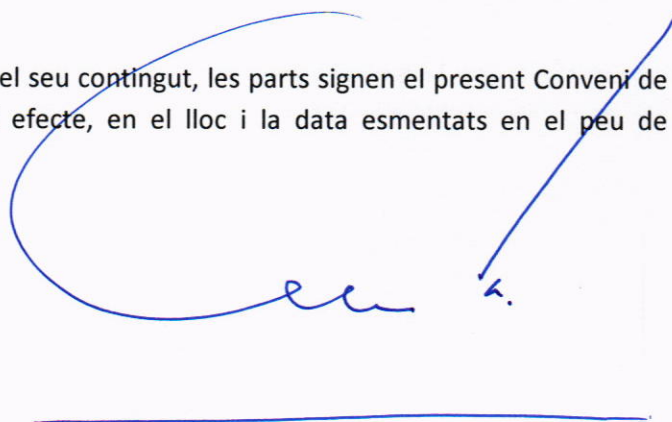 el seu contingut, les parts signen el present Conveni de
efecte, en el lloc i la data esmentats en el peu de